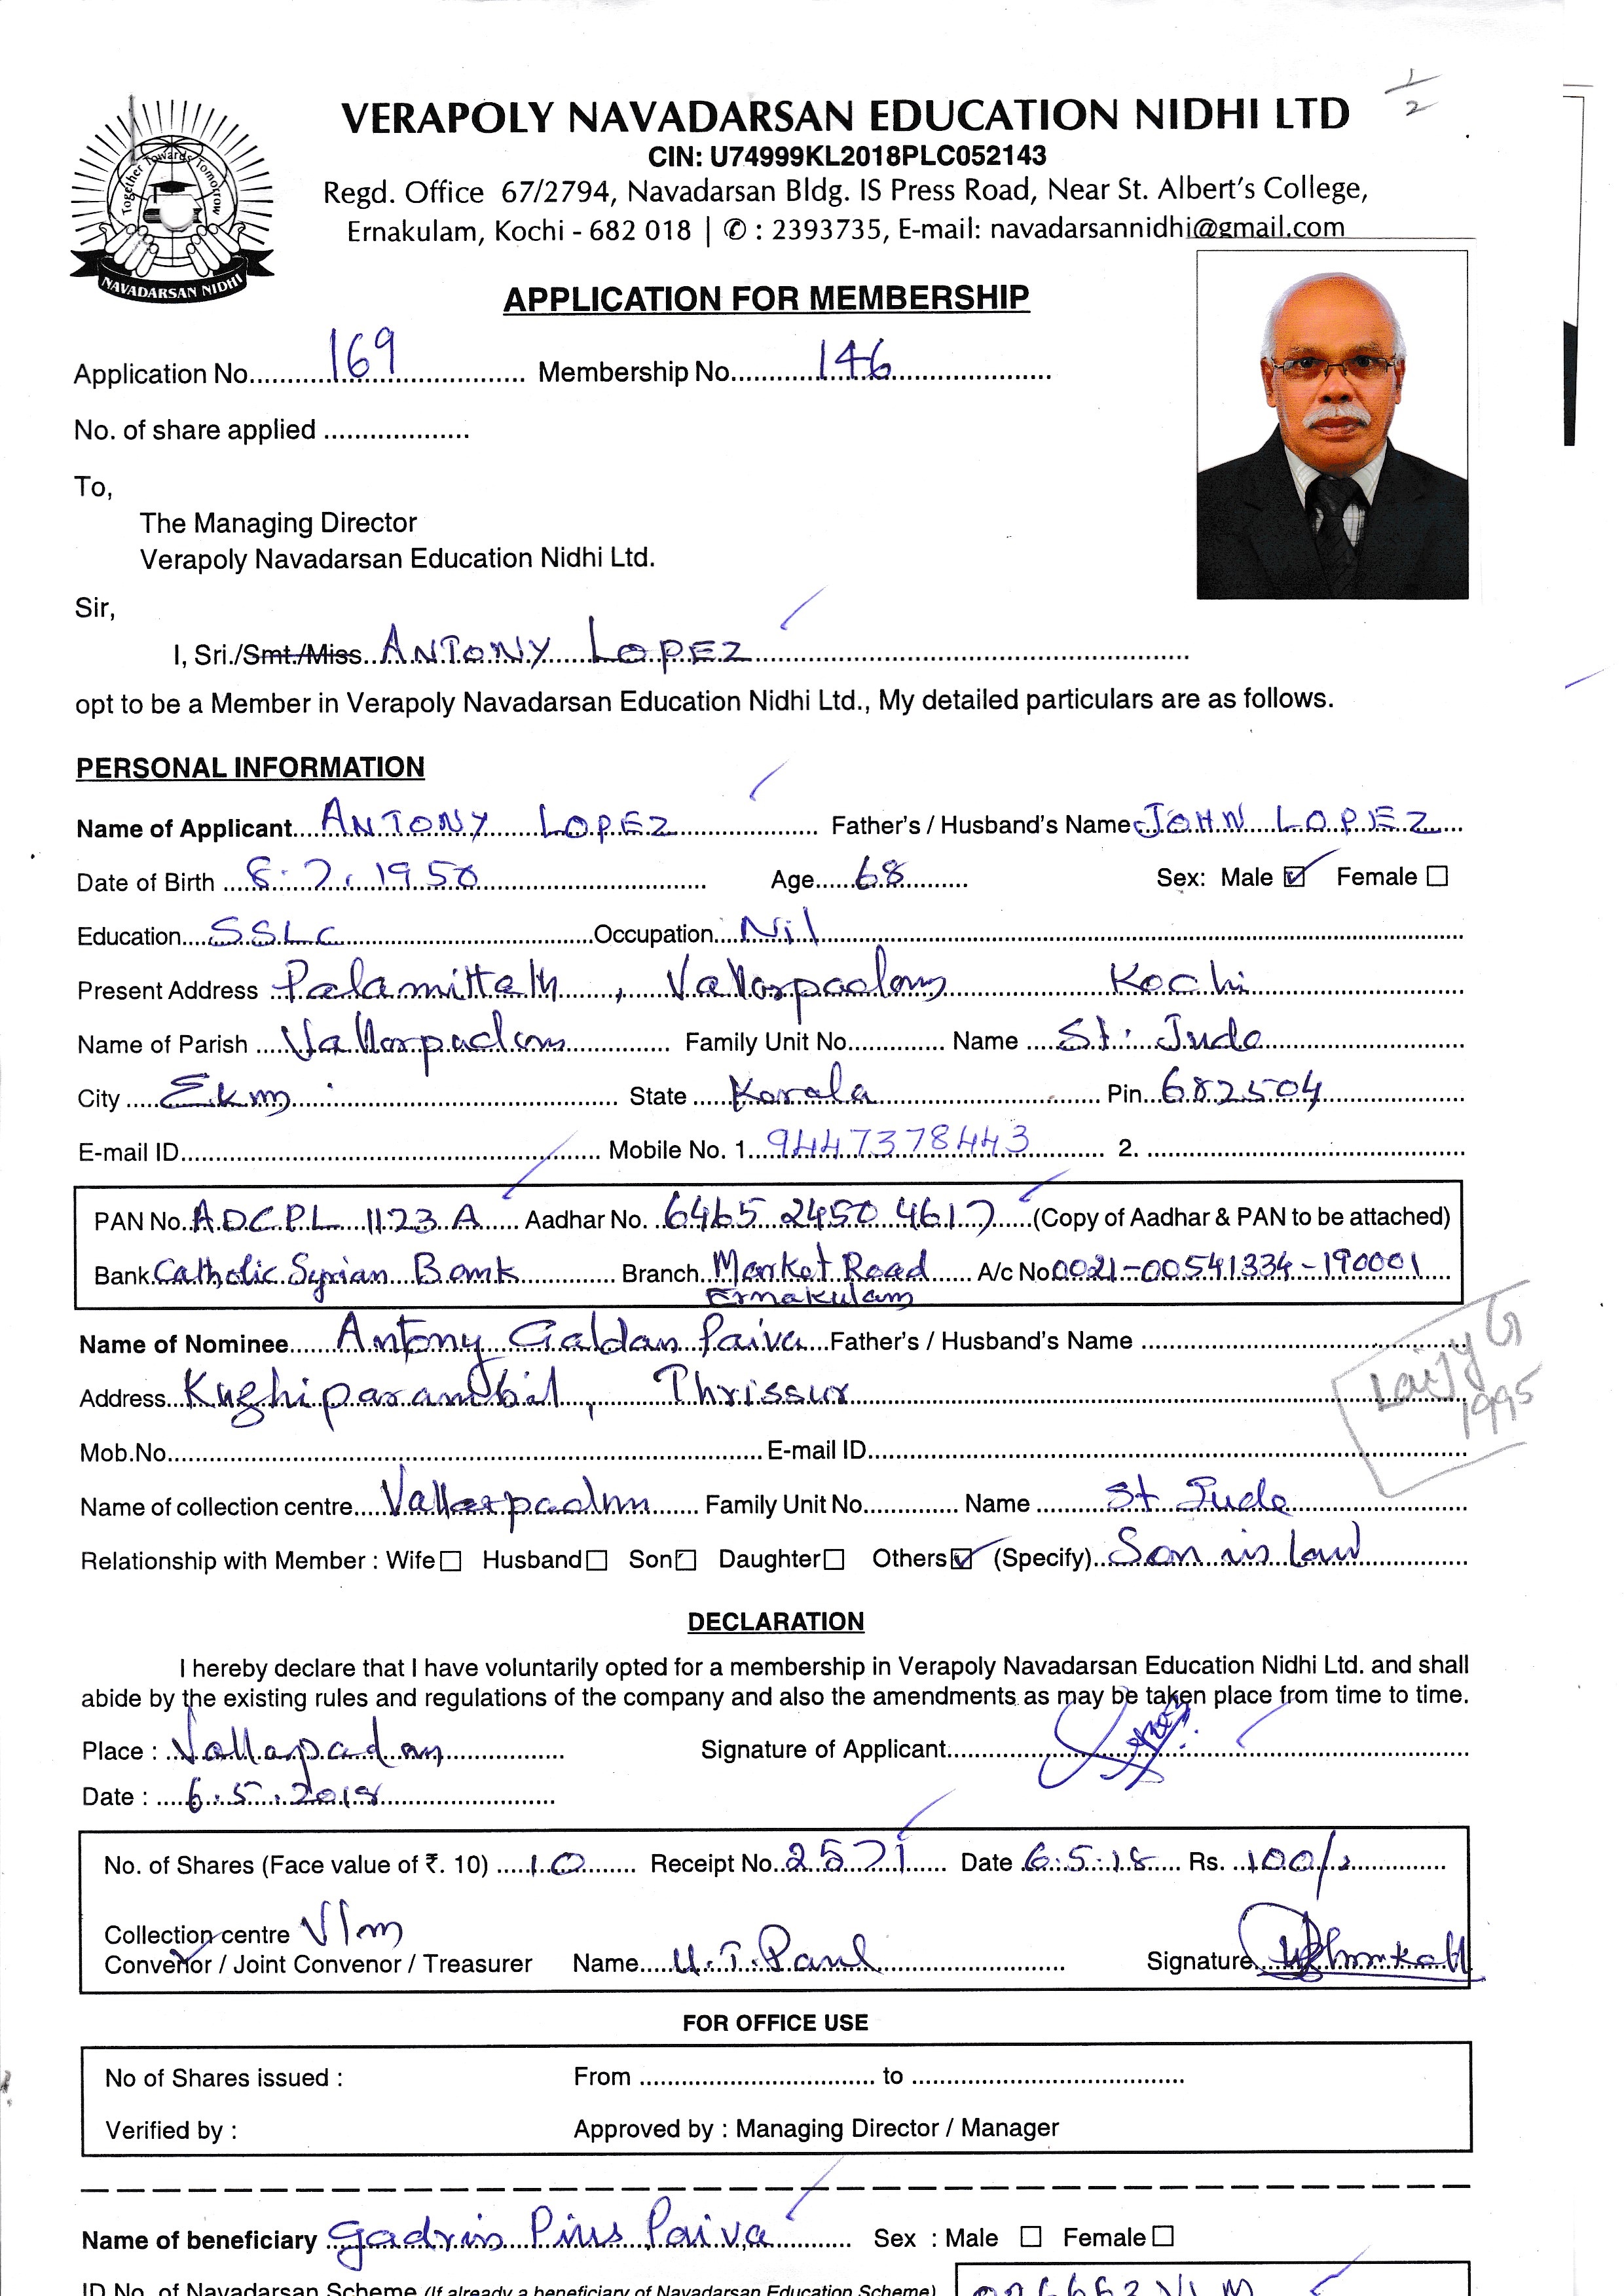 1/2
VERAPOLY NAVADARSAN EDUCATION NIDHI LTD
CIN: U74999KL2018PLC052143
Regd. Office 67/2794, Navadarsan Bldg. IS Press Road, Near St. Albert's College,
Ernakulam, Kochi - 682 018 | ✆ : 2393735, E-mail: navadarsannidhi@gmail.com
Together Towards Tomorrow
NAVADARSAN NIDHI
APPLICATION FOR MEMBERSHIP
Application No. 169 Membership No. 146
No. of share applied
To,
The Managing Director
Verapoly Navadarsan Education Nidhi Ltd.
Sir,
I, Sri./Smt./Miss ANTONY LOPEZ
opt to be a Member in Verapoly Navadarsan Education Nidhi Ltd., My detailed particulars are as follows.
PERSONAL INFORMATION
Name of Applicant ANTONY LOPEZ Father's / Husband's Name JOHN LOPEZ
Date of Birth 8.7.1950 Age 68 Sex: Male ☑ Female ☐
Education SSLC Occupation Nil
Present Address Palamittath, Vallarpadam Kochi
Name of Parish Vallarpadam Family Unit No. Name St. Jude
City Ekm State Kerala Pin 682504
E-mail ID Mobile No. 1. 9447378443 2.
PAN No. ADCPL 1123 A Aadhar No. 6465 2450 4617 (Copy of Aadhar & PAN to be attached)
Bank Catholic Syrian Bank Branch Market Road A/c No 0021-00541334-190001
Ernakulam
Name of Nominee Antony Galdan Paiva Father's / Husband's Name
Address Thrissur
Laijy G
1995
Mob.No. E-mail ID
Name of collection centre Vallarpadam Family Unit No. Name St Jude
Relationship with Member : Wife ☐ Husband ☐ Son ☐ Daughter ☐ Others ☑ (Specify) Son in law
DECLARATION
I hereby declare that I have voluntarily opted for a membership in Verapoly Navadarsan Education Nidhi Ltd. and shall
abide by the existing rules and regulations of the company and also the amendments as may be taken place from time to time.
Place : Vallarpadam Signature of Applicant
Date : 6.5.2018
No. of Shares (Face value of ₹. 10) 10 Receipt No. 2571 Date 6.5.18 Rs. 100/-
Collection centre Vlm
Convenor / Joint Convenor / Treasurer Name U.T. Paul Signature
FOR OFFICE USE
No of Shares issued : From to
Verified by : Approved by : Managing Director / Manager
Name of beneficiary Gadrin Pius Paiva Sex : Male ☐ Female ☐
ID No. of Navadarsan Scheme (If already a beneficiary of Navadarsan Education Scheme)